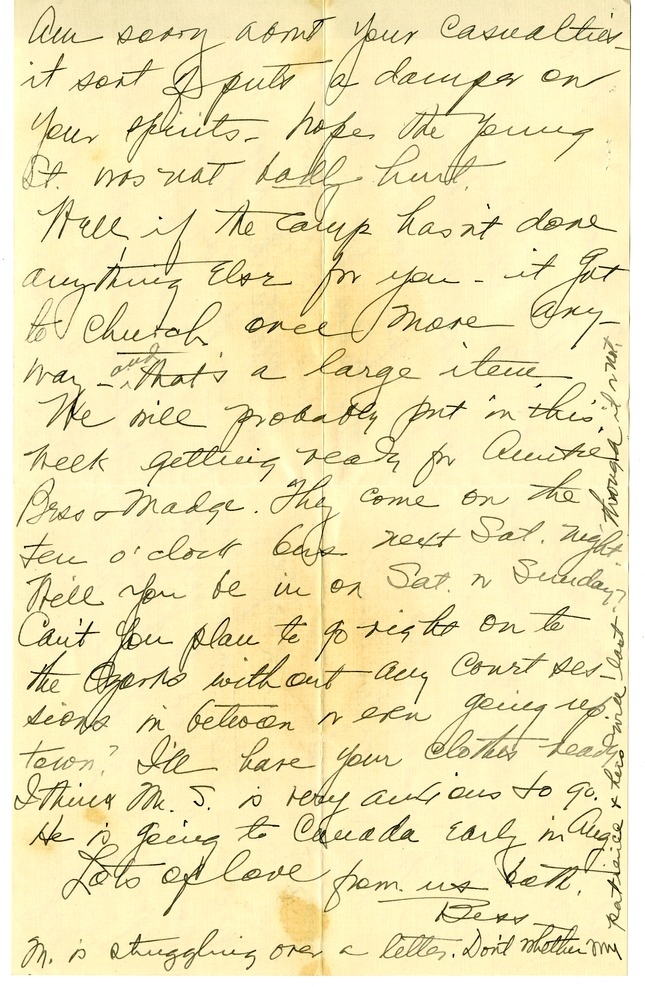 Am sorry about your casualties -
it sort of puts a damper on
your spirits - hope the young
Lt. was not badly hurt.
Well if the camp hasn't done
anything else for you - it got
to church once more any-
way - and that's a large item.
We will probably put in this
week getting ready for Auntie
Bess & Madge. They come on the
ten o'clock bus next Sat. night.
Will you be in on Sat. or Sunday?
Can't you plan to go right on to
the Ozarks without any court ses-
sions in between or even going up
town? I'll have your clothes ready.
I think Mr. S. is very anxious to go.
He is going to Canada early in Aug.
Lots of love from us both.
Bess
M. is struggling over a letter. Don't whether my
patience & hers will last through it or not.